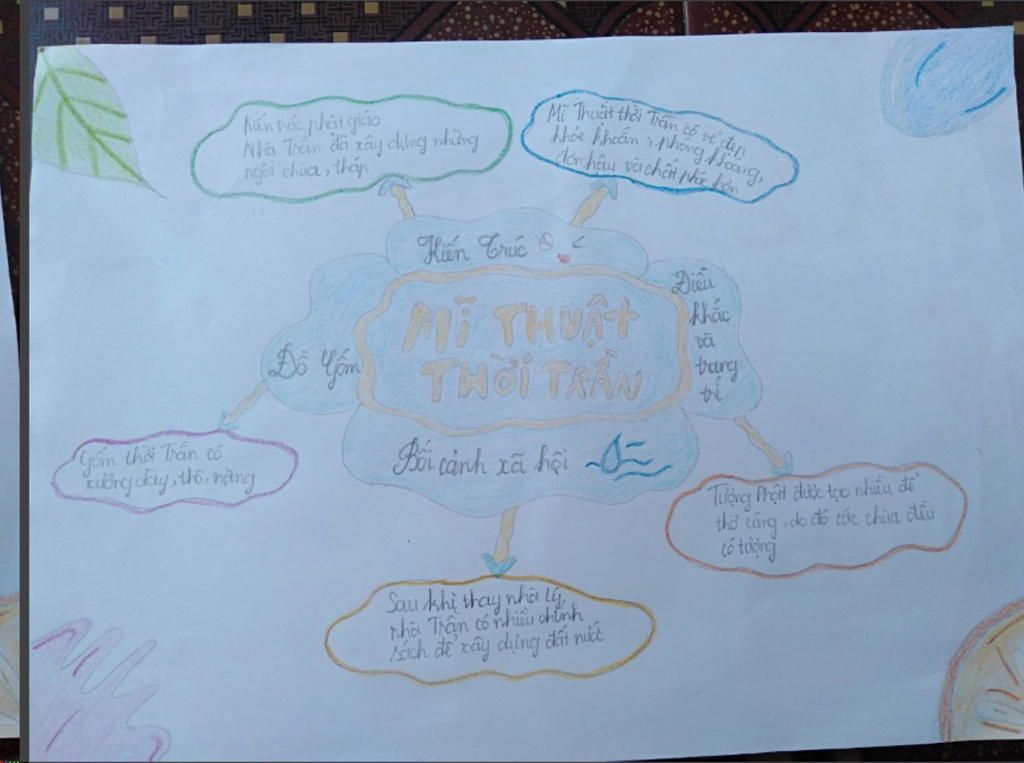 Kiến trúc phật giáo
Nhà Trần đã xây dựng những
ngôi chùa, tháp
Mĩ Thuật thời Trần có vẻ đẹp
khỏe khoắn, phóng khoáng,
đôn hậu và chất phác hơn
Kiến Trúc
MĨ THUẬT
THỜI TRẦN
Điều
khắc
và
trang
trí
Đồ Gốm
Bối cảnh xã hội
Gốm thời Trần có
xương dày, thô, nặng
Tượng Phật được tạc nhiều để
thờ cúng, do đó các chùa đều
có tượng
Sau khi thay nhà Lý,
nhà Trần có nhiều chính
sách để xây dựng đất nước